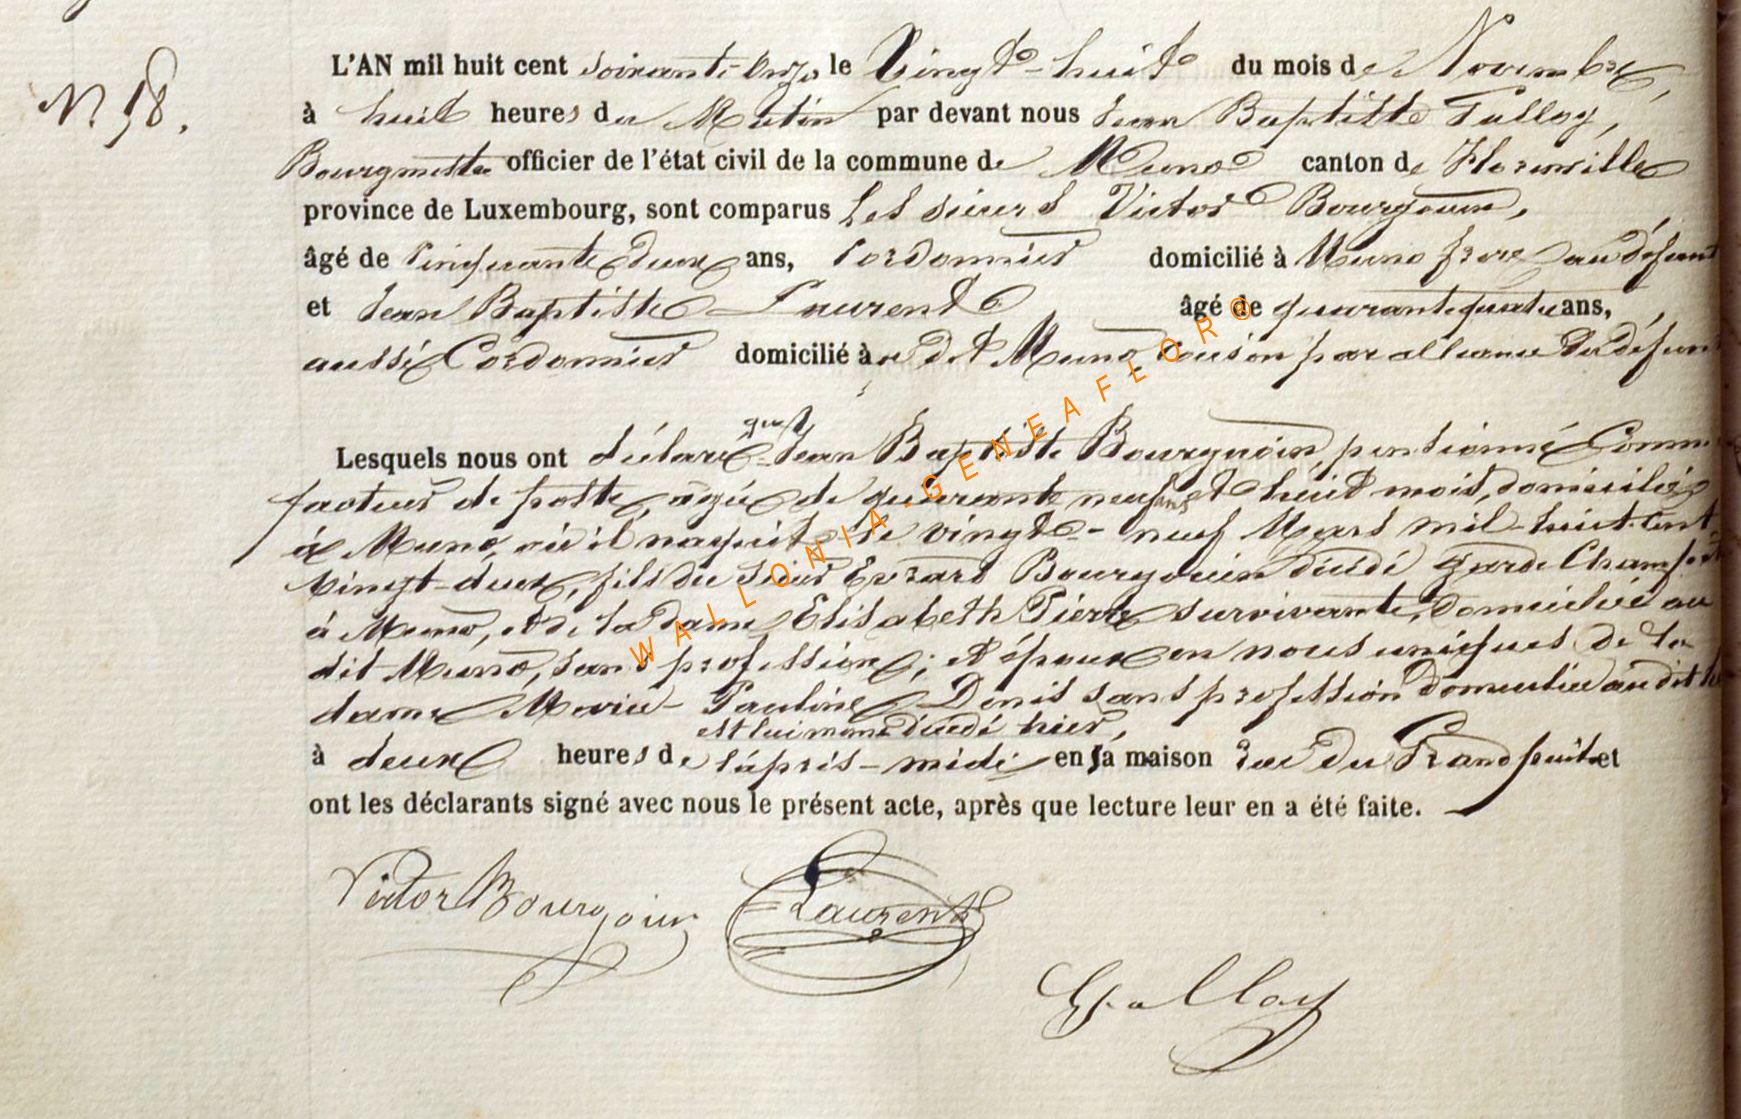 N. 58.
L'AN mil huit cent soixante-onze le Vingt-huit du mois de Novembre,
à huit heures du Matin par devant nous Jean Baptiste Talloy,
Bourgmestre officier de l'état civil de la commune de Muno canton de Florenville
province de Luxembourg, sont comparus Les sieurs Victor Bourgouin,
âgé de Cinquante deux ans, Cordonnier domicilié à Muno frère au défunt
et Jean Baptiste Laurent âgé de quarante quatre ans,
aussi Cordonnier domicilié à u dit Muno, cousin par alliance du défunt
Lesquels nous ont déclaré que Jean Baptiste Bourgouin pensionné Comme
facteur de poste, agée de quarante neuf ans et huit mois, domicilié
à Muno, où il naquit le vingt-neuf Mars mil-huit-cent
Vingt-deux, fils du sieur Evrard Bourgouin décédé garde Champêt
à Muno, et de la dame Elisabeth Pierre survivante, domiciliée au
dit Muno, sans profession; et époux en nous uniques de la
dame Marie-Pauline Denis sans profession domiciliée au dit
est lui même décédé hier,
à deux heures de l'après-midi en sa maison rue du Grand puits et
ont les déclarants signé avec nous le présent acte, après que lecture leur en a été faite.
Victor Bourgouin Laurent
Talloy
WALLONIA.GENEAFLOR®